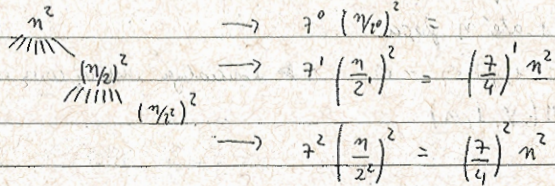 n² → 7⁰ (n/2⁰)² =
(n/2)² → 7¹ (n/2¹)² = (7/4)¹ n²
(n/2²)²
→ 7² (n/2²)² = (7/4)² n²